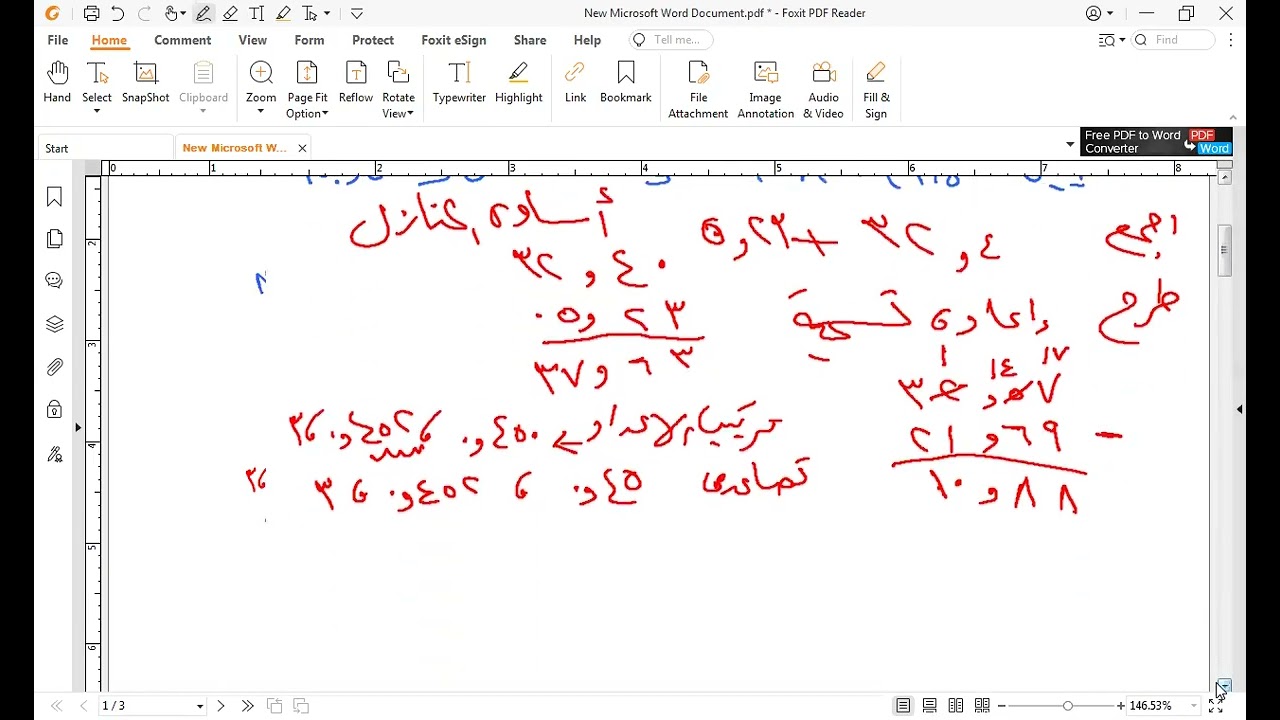 New Microsoft Word Document.pdf * - Foxit PDF Reader
File Home Comment View Form Protect Foxit eSign Share Help Tell me... Find
Hand Select SnapShot Clipboard Zoom Page Fit Option Reflow Rotate View Typewriter Highlight Link Bookmark File Attachment Image Annotation Audio & Video Fill & Sign
Start New Microsoft W... Free PDF to Word Converter PDF Word
0 1 2 3 4 5 6 7 8
اجمع ٣٢,٤ + ٥,٢٣
٣٢,٤٠
٠٥,٢٣
٣٧,٦٣
طرح
١ ١٤ ١٧
٢١,٦٩ -
١٠,٨٨
ترتيب الاعداد ← ٠,٤٥٠
تصاعدي ٠,٤٥ ، ٠,٤٥٢ ، ٣
2
3
4
5
6
1 / 3 146.53%